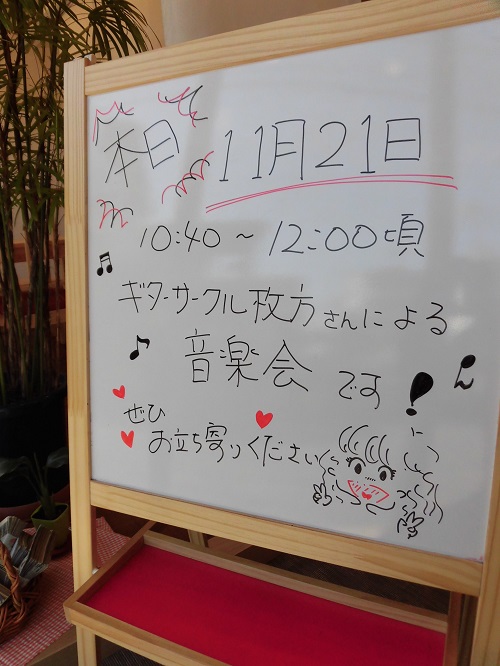 本日 11月21日
10:40～12:00頃
ギターサークル枚方さんによる
音楽会です!
ぜひ
お立ち寄りください